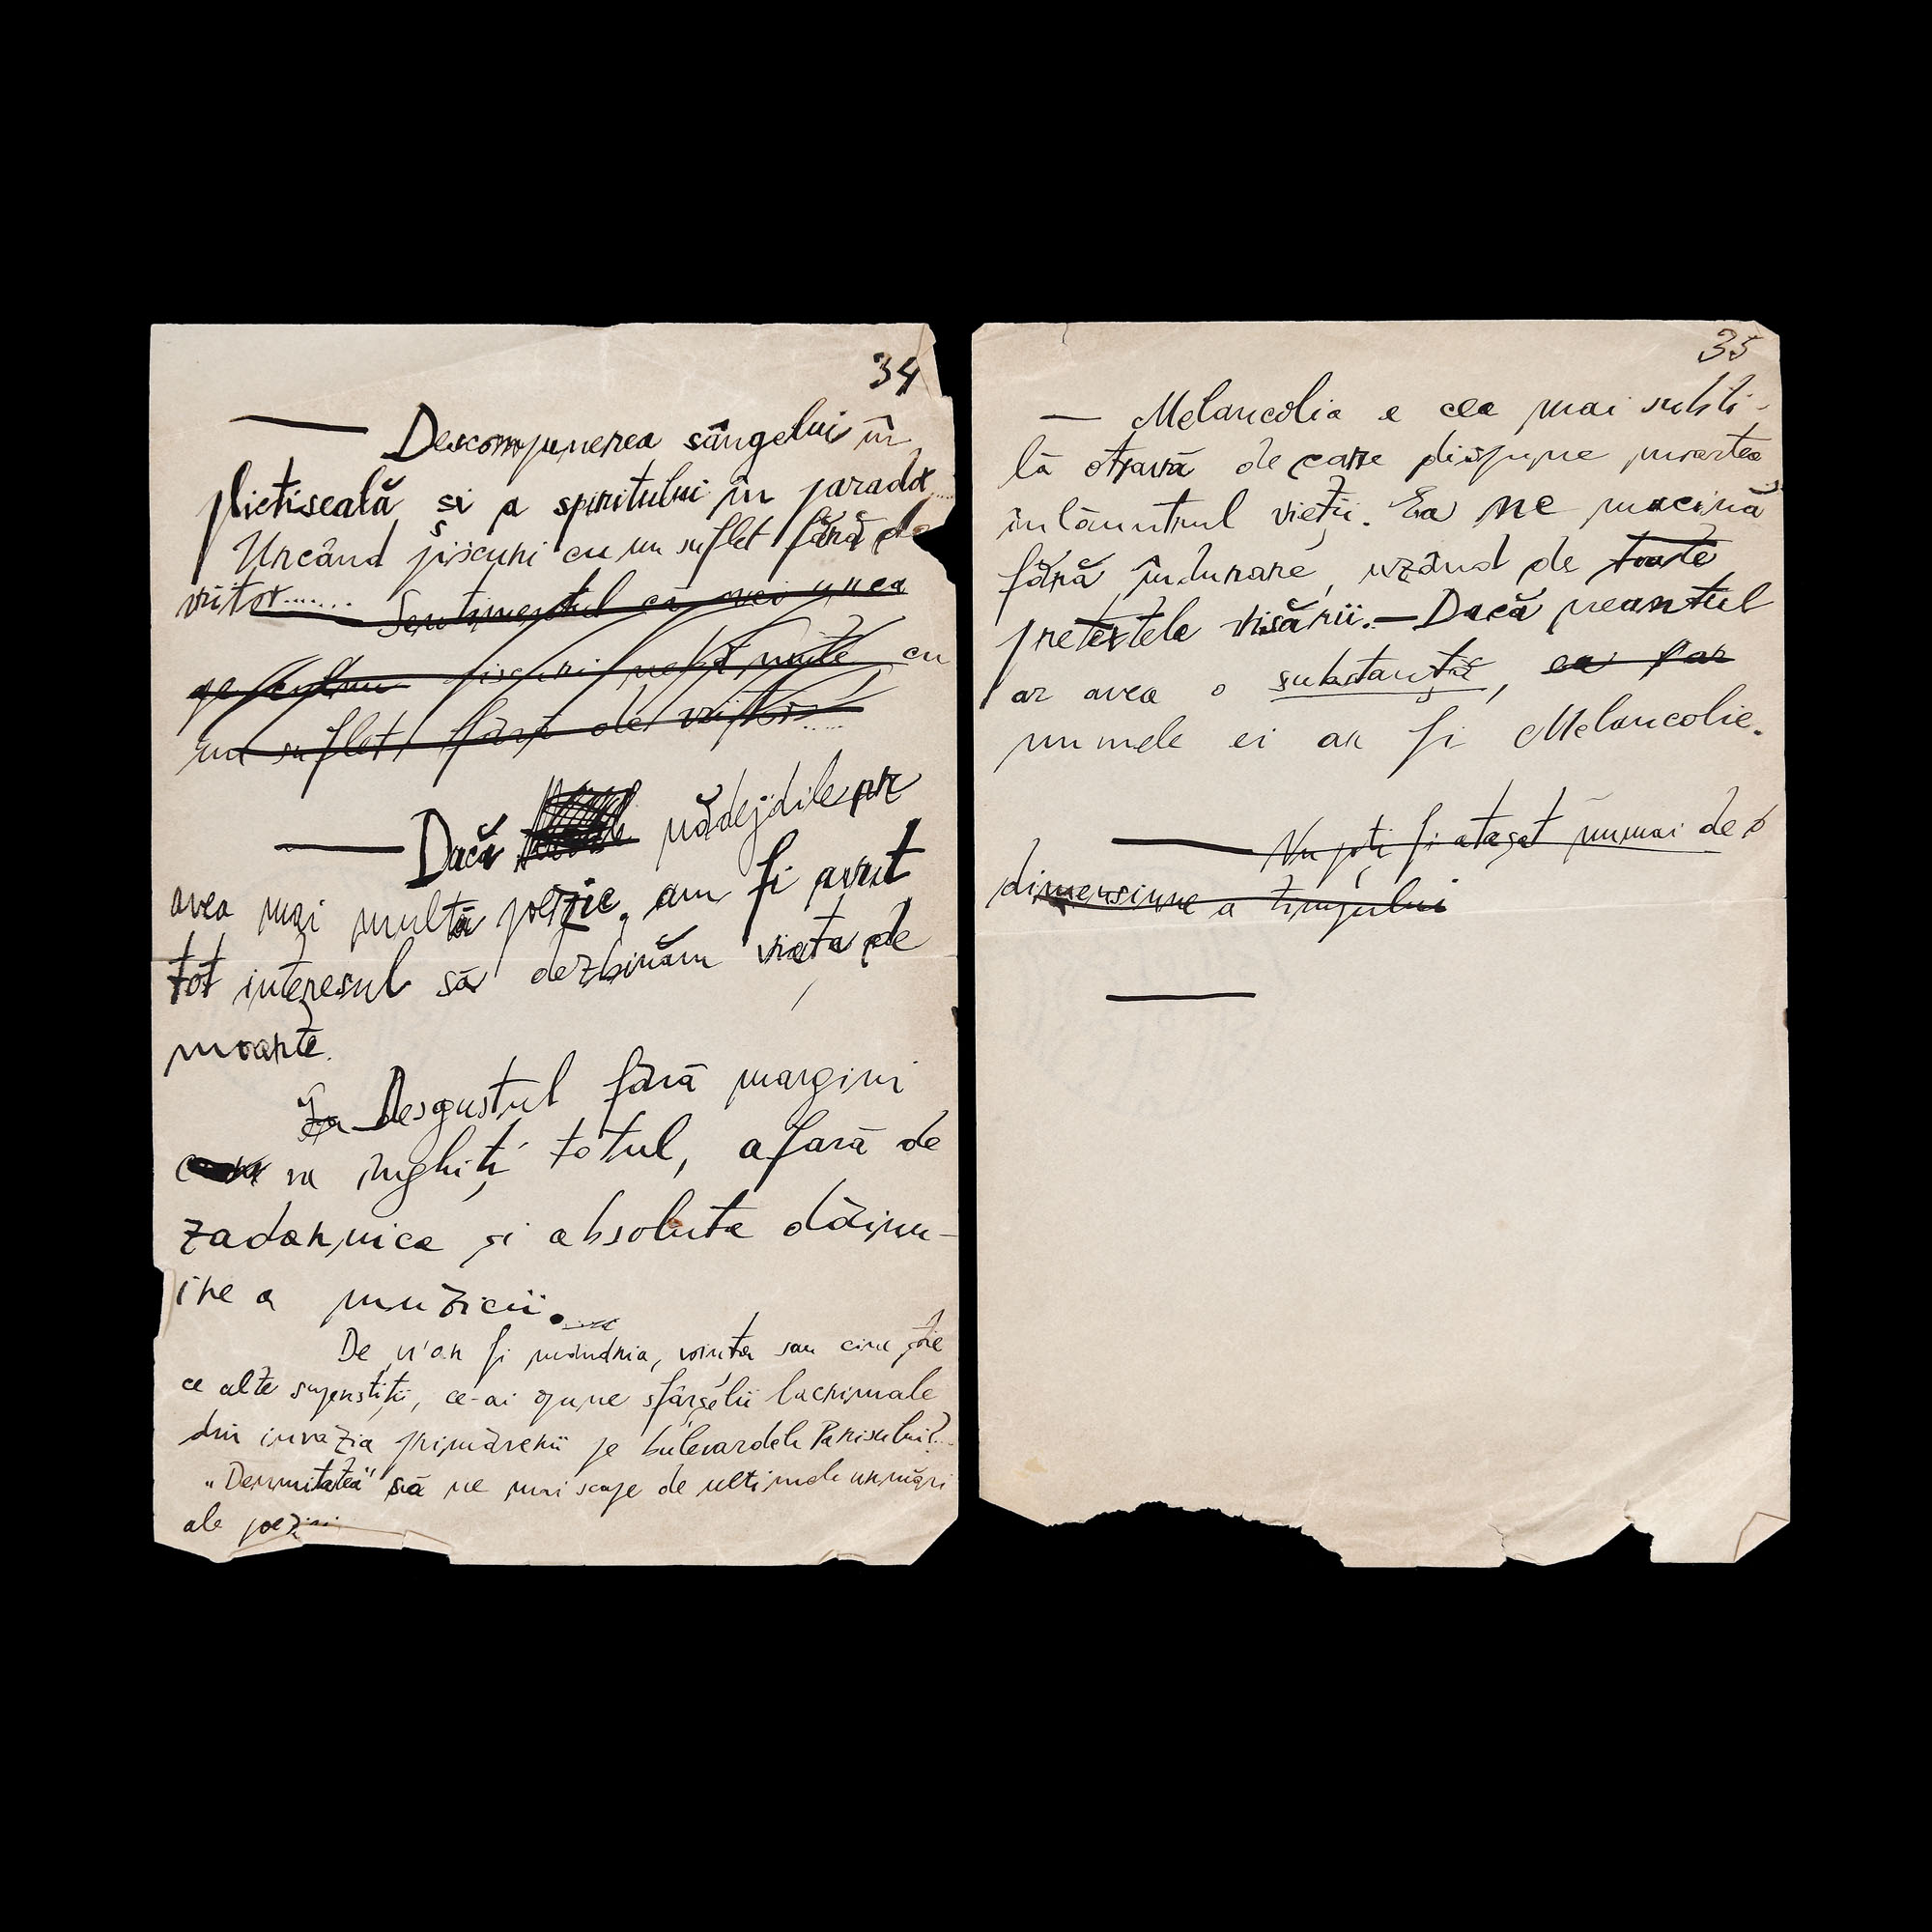 34
— Descompunerea sângelui în
plictiseală și a spiritului în paradox
Urcând piscuri cu un suflet fără de
viitor.......
Sentimentul că vei urca
pe piscuri cu
un suflet fără de viitor.....
— Dacă nădejdile ar
avea mai multă poezie, am fi avut
tot interesul să dezbinăm viața de
moarte.
Desgustul fără margini
va înghiți totul, afară de
zadarnica și absoluta dăinu-
ire a muzicii.
De n'ar fi mândria, voința sau cine știe
ce alte superstiții, ce-ai opune sfârșelii lacrimale
din invazia primăverii pe bulevardele Parisului?...
„Demnitatea" să ne mai scape de ultimele urmări
ale poeziei
35
— Melancolia e cea mai subti-
lă otravă de care dispune moartea
înlăuntrul vieții. Ea ne macină
fără îndurare, uzând de toate
pretextele visării. — Dacă neantul
ar avea o substanță, ea s'ar
numele ei ar fi Melancolie.
— Nu poți fi atașat numai de o
dimensiune a timpului